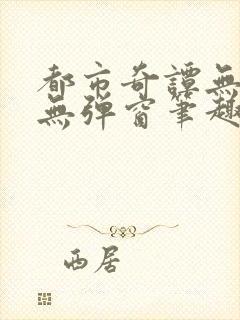 都市奇譚無
無彈窗筆趣
西居